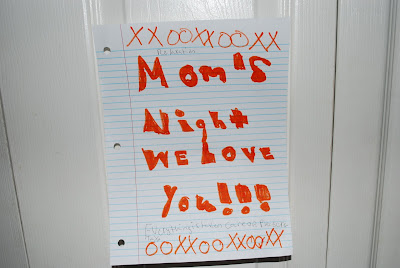 XXOOXXOOXX
Mom's
Night
WE LOVE
You!!!
OOXXOOXXOOXX